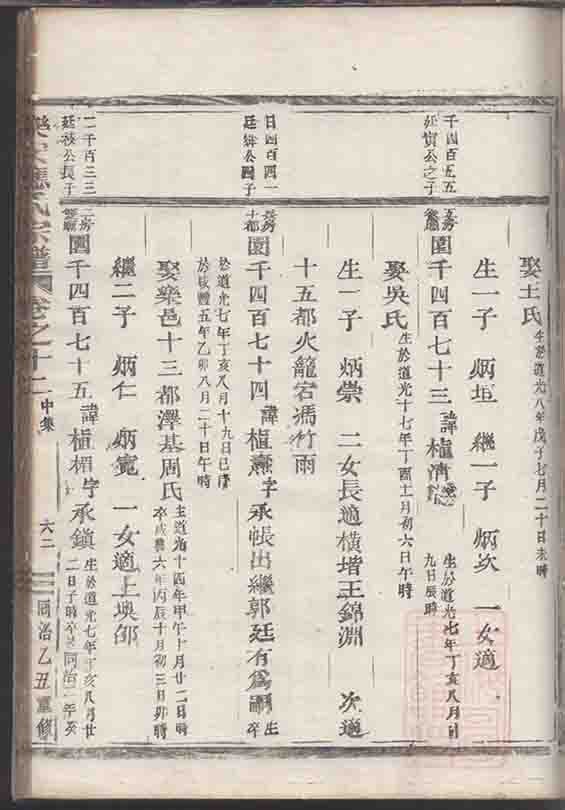 娶王氏生於道光八年戊子七月二十日未時
生一子 炳垣 繼一子 炳欢 一女適
千四百五五
廷實公之子
園千四百七十三 諱植清 生於道光七年丁亥八月
九日辰時
娶吳氏生於道光十七年丁酉十二月初六日午時
生一子 炳崇 二女長適橫塔王錦淵 次適
十五都火籠宕馮竹雨
日四百四一
廷 公 子
園千四百七十四 諱植 字承帳出繼郭廷有為嗣生
卒
於道光七年丁亥八月十九日巳時
於咸豐五年乙卯八月二十日午時
娶樂邑十三都澤基周氏 生道光十四年甲午十月廿二日時
卒咸豐六年丙辰十月初三日卯時
繼二子 炳仁 炳寬 一女適上奧邵
二千百三三
廷 公長子
園千四百七十五 諱植楣字承鎮 生於道光七年丁亥八月廿
二日子時卒於同治二年癸
宗譜 卷之十二 中集 六二 同治乙丑重修